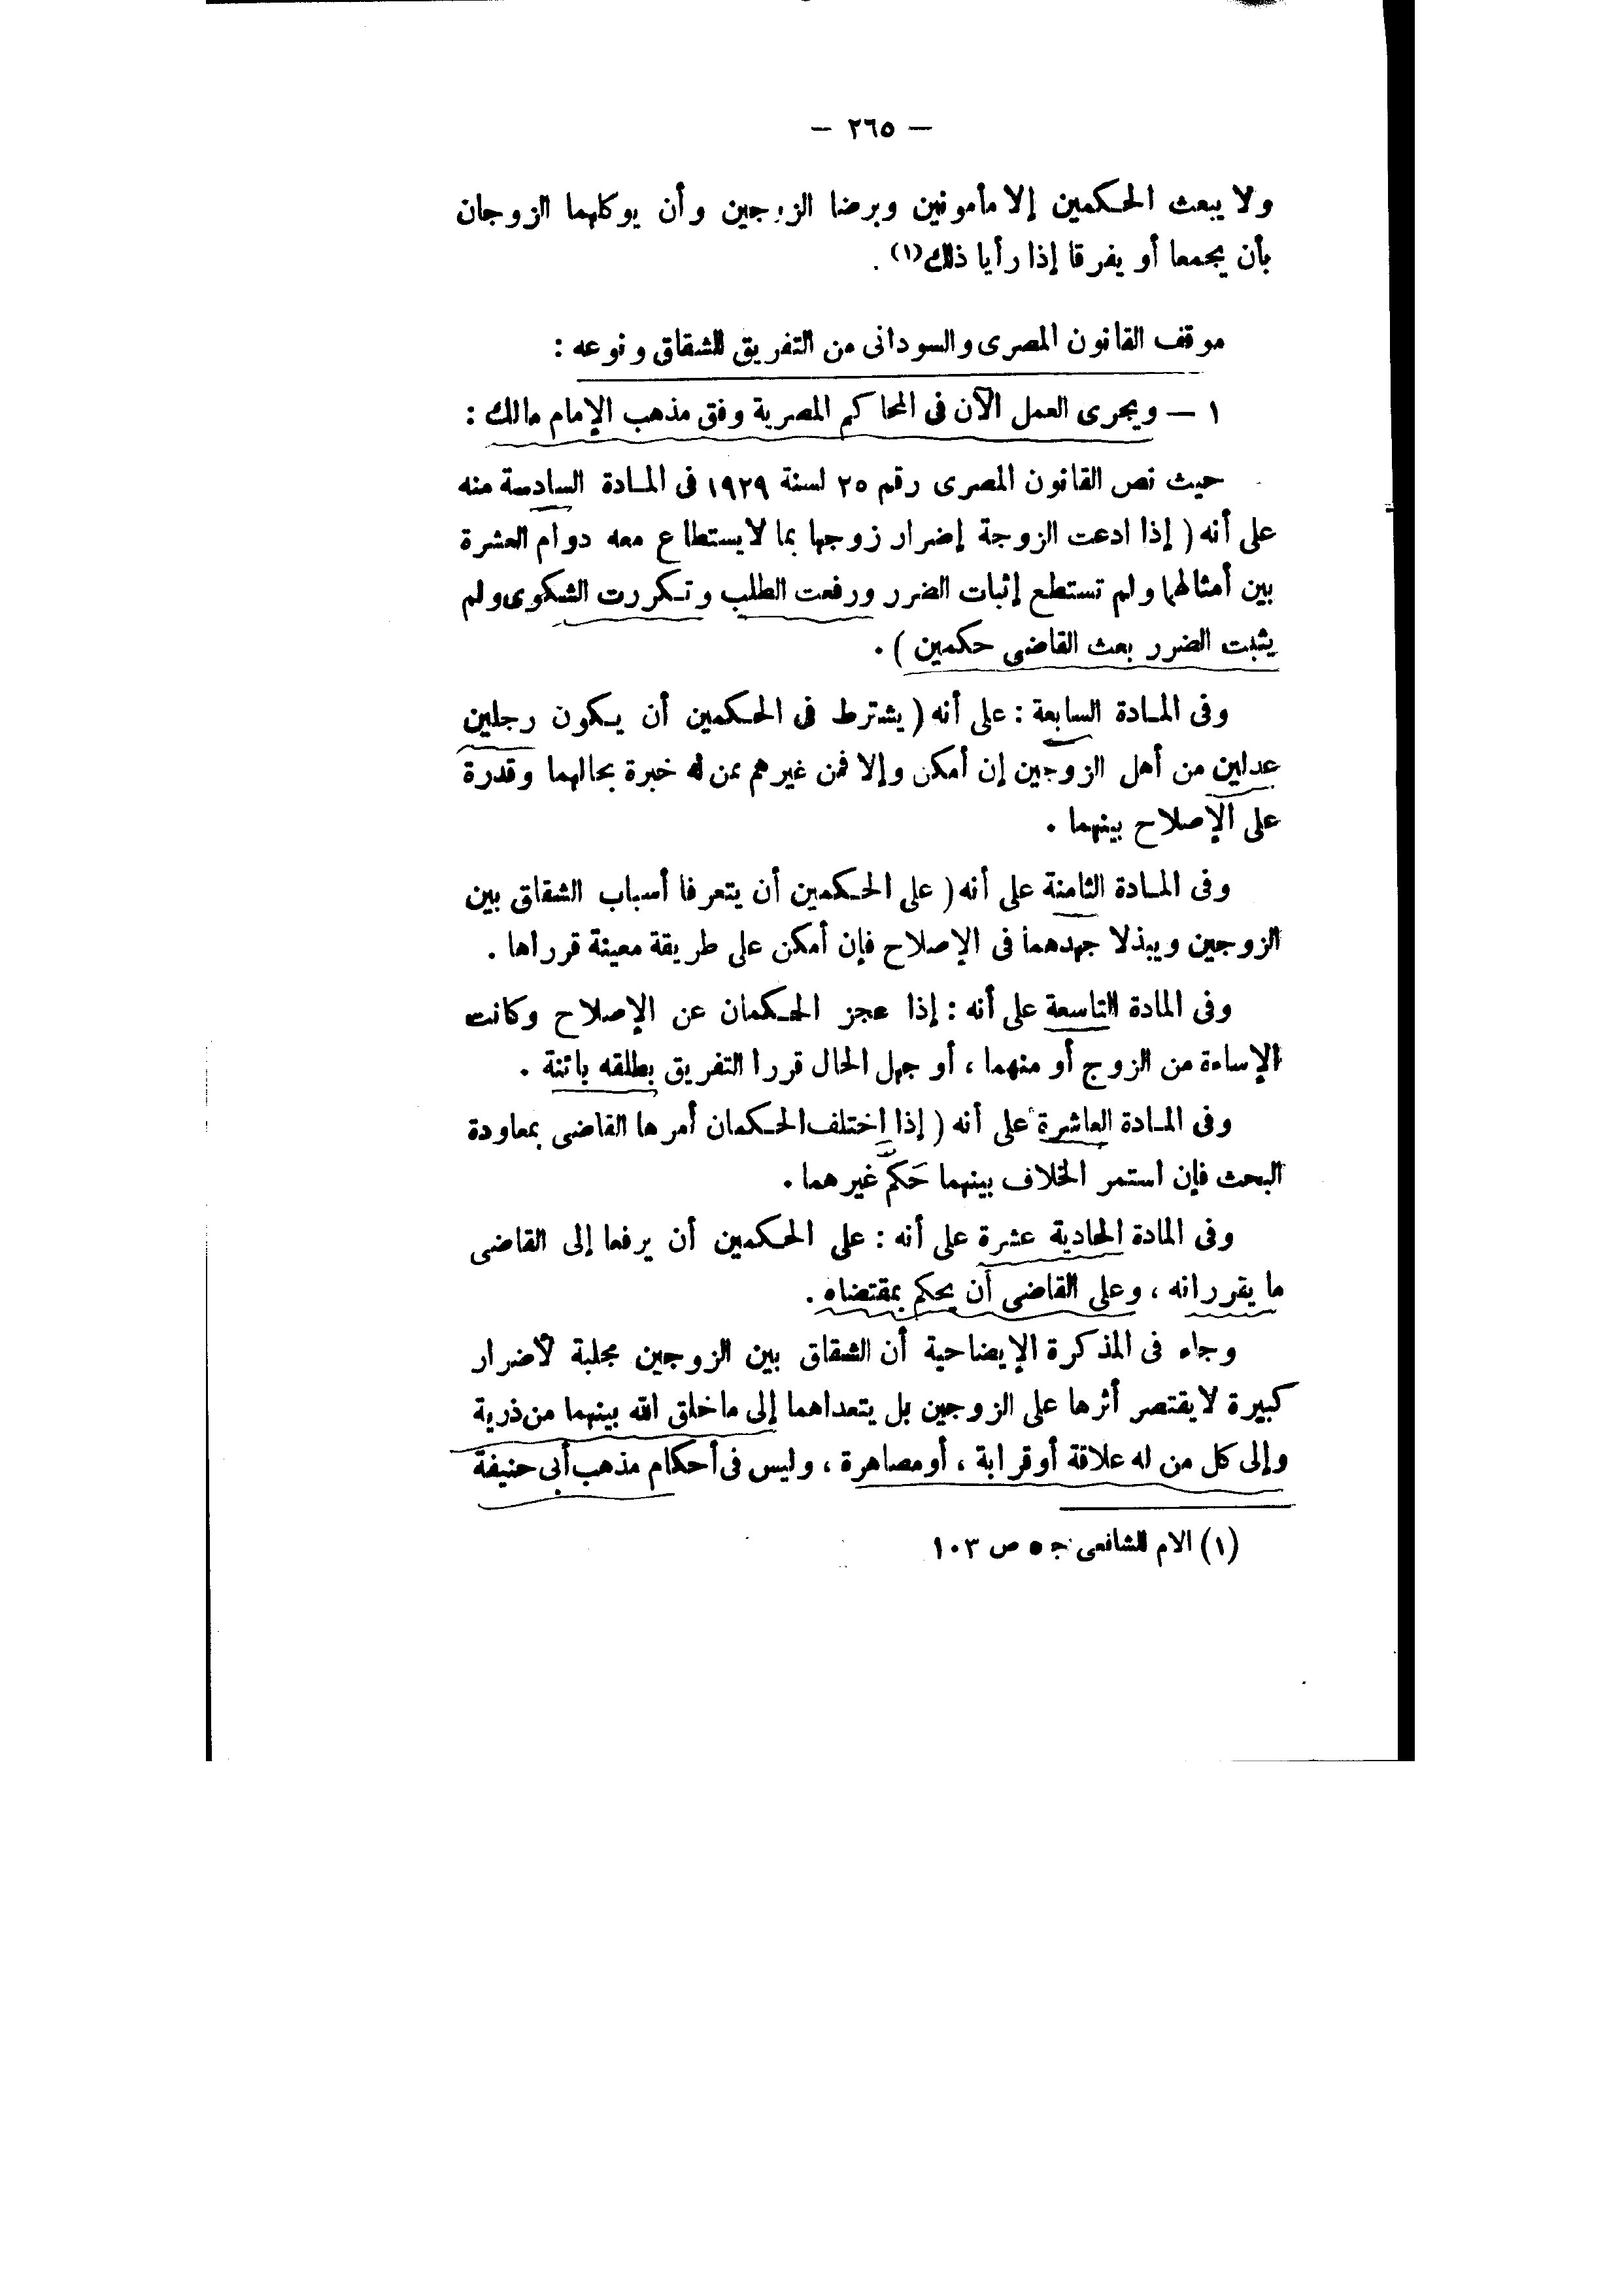 — ٢٦٥ —
ولا يبعث الحكمين إلا مأمونين وبرضا الزوجين وأن يوكلهما الزوجان
بأن يجمعا أو يفرقا إذا رأيا ذلك(١) .
موقف القانون المصرى والسودانى من التفريق للشقاق ونوعه :
١ — ويجرى العمل الآن فى المحاكم المصرية وفق مذهب الإمام مالك :
حيث نص القانون المصرى رقم ٢٥ لسنة ١٩٢٩ فى المادة السادسة منه
على أنه ( إذا ادعت الزوجة إضرار زوجها بما لا يستطاع معه دوام العشرة
بين أمثالهما ولم تستطع إثبات الضرر ورفعت الطلب وتكررت الشكوى ولم
يثبت الضرر بعث القاضى حكمين ) .
وفى المادة السابعة : على أنه ( يشترط فى الحكمين أن يكون رجلين
عدلين من أهل الزوجين إن أمكن وإلا فمن غيرهم ممن له خبرة بحالهما وقدرة
على الإصلاح بينهما .
وفى المادة الثامنة على أنه ( على الحكمين أن يتعرفا أسباب الشقاق بين
الزوجين ويبذلا جهدهما فى الإصلاح فإن أمكن على طريقة معينة قرراها .
وفى المادة التاسعة على أنه : إذا عجز الحكمان عن الإصلاح وكانت
الإساءة من الزوج أو منهما ، أو جهل الحال قررا التفريق بطلقه بائنة .
وفى المادة العاشرة على أنه ( إذا اختلف الحكمان أمرها القاضى بمعاودة
البحث فإن استمر الخلاف بينهما حَكَّم غيرهما .
وفى المادة الحادية عشرة على أنه : على الحكمين أن يرفعا إلى القاضى
ما يقررانه ، وعلى القاضى أن يحكم بمقتضاه .
وجاء فى المذكرة الإيضاحية أن الشقاق بين الزوجين مجلبة لأضرار
كبيرة لا يقتصر أثرها على الزوجين بل يتعداهما إلى ما خلق الله بينهما من ذرية
وإلى كل من له علاقة أو قرابة ، أو مصاهرة ، وليس فى أحكام مذهب أبى حنيفة
(١) الام للشافعى ج ٥ ص ١٠٣